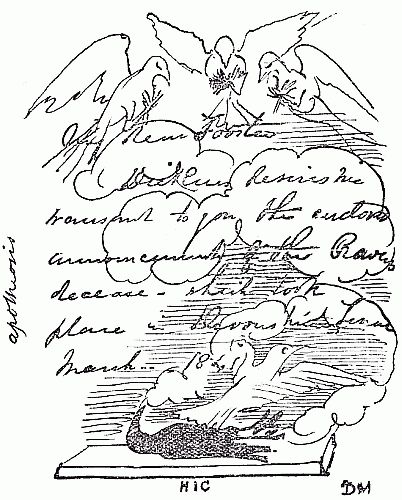 My dear Forster
Dickens desires me
transmit to you the enclosed
announcement of the Raven's
decease - which took
place in Devonshire Terrace
March -
apotheosis
HIC
DM